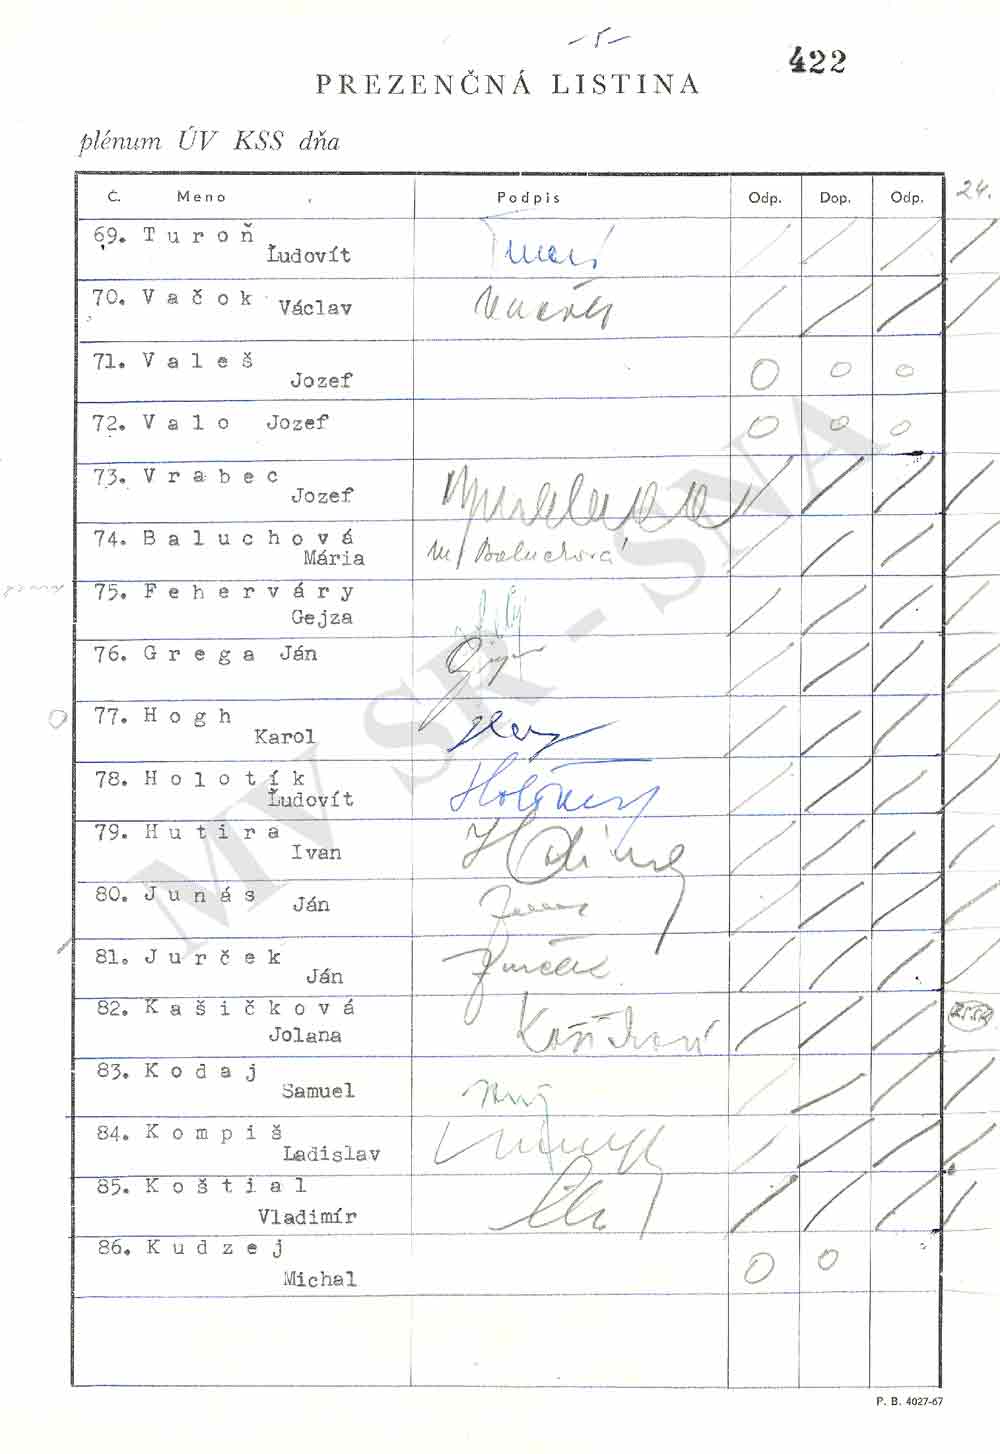 -5-
422
PREZENČNÁ LISTINA
plénum ÚV KSS dňa
Č. Meno Podpis Odp. Dop. Odp. 24.
69. Turoň
Ľudovít
70. Vačok Václav
71. Valeš
Jozef
72. Valo Jozef
73. Vrabec
Jozef
74. Baluchová
Mária M/ Baluchová
75. Feherváry
Gejza
76. Grega Ján
77. Hogh
Karol
78. Holotík
Ľudovít Holotík
79. Hutira
Ivan
80. Junás Ján
81. Jurček
Ján Jurček
82. Kašičková
Jolana
83. Kodaj
Samuel
84. Kompiš
Ladislav
85. Koštial
Vladimír
86. Kudzej
Michal
P. B. 4027-67
MV SR - SNA